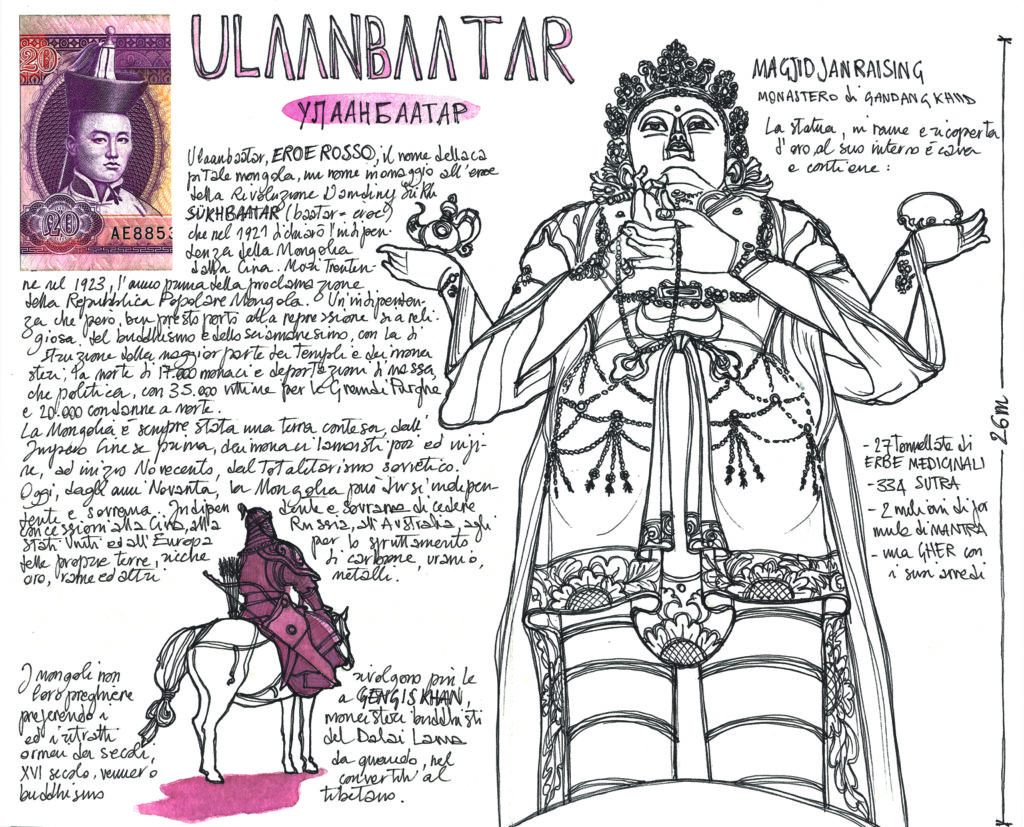 20
£0
AE8853
ULAANBAATAR
УЛААНБААТАР
Ulaanbaatar, EROE ROSSO, il nome della ca
pitale mongola, un nome omaggio all'eroe
della Rivoluzione Damdiny Sükh
SÜKHBAATAR (baatar = eroe)
che nel 1921 dichiarò l'indipen
denza della Mongolia
dalla Cina. Morì trenten-
ne nel 1923, l'anno prima della proclamazione
della Repubblica Popolare Mongola. Un'indipenden-
za che però, ben presto portò alla repressione sia reli
giosa, del buddhismo e dello sciamanesimo, con la di
struzione della maggior parte dei templi e dei mona
steri, la morte di 17.000 monaci e deportazioni di massa,
che politica, con 35.000 vittime per le Grandi Purghe
e 20.000 condanne a morte.
La Mongolia è sempre stata una terra contesa, dall'
Impero Cinese prima, dei monaci lamaisti poi ed infi
ne, ad inizio Novecento, dal Totalitarismo sovietico.
Oggi, dagli anni Novanta, la Mongolia può dirsi indipen
dente e sovrana. Indipen dente e sovrana di cedere
concessioni alla Cina, alla Russia, all'Australia, agli
Stati Uniti ed all'Europa per lo sfruttamento
delle proprie terre, ricche di carbone, uranio,
oro, rame ed altri metalli.
I mongoli non rivolgono più le
loro preghiere a GENGIS KHAN,
preferendo i monasteri buddhisti
ed i ritratti del Dalai Lama
ormai da secoli, da quando, nel
XVI secolo, vennero convertiti al
buddhismo tibetano.
MAGJID JANRAISING
MONASTERO di GANDANG KHIID
La statua, in rame e ricoperta
d'oro, al suo interno è cava
e contiene:
- 27 tonnellate di
ERBE MEDICINALI
- 334 SUTRA
- 2 milioni di for
mule di MANTRA
- una GHER con
i suoi arredi
26m